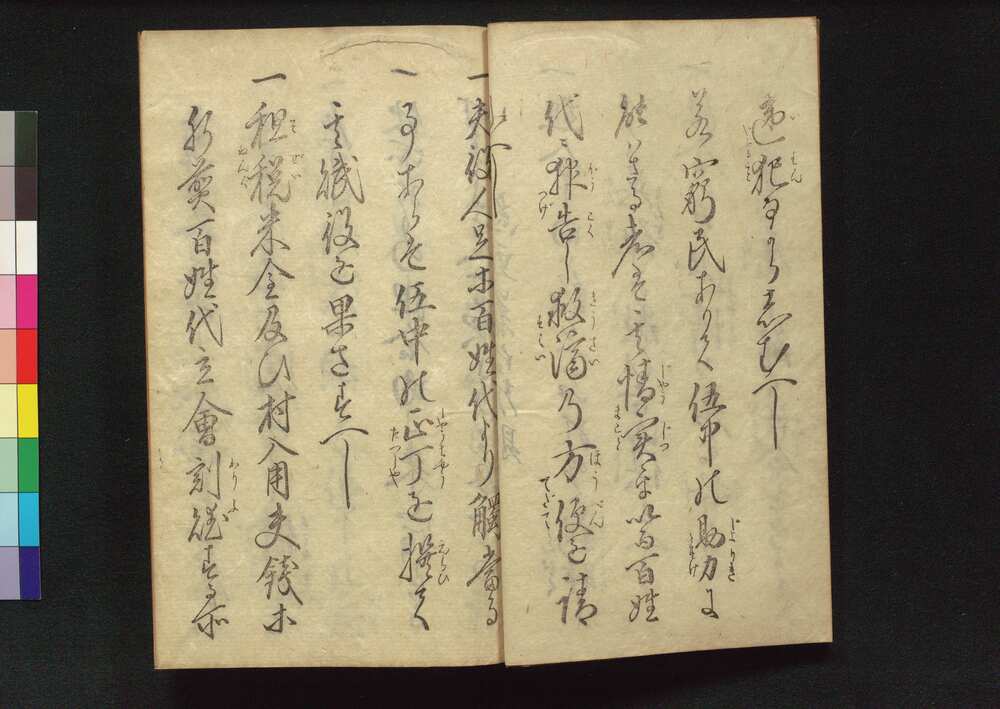 違犯なからしむへし
若窮民ありて伍中の助力に
能はさる者は其情実を以百姓
代へ報告し救済の方便を請
一夫役人足等百姓代より觸当る
一 事あらは伍中の正丁を撰て
其職役を果さすへし
一租税米金及ひ村入用夫銭等
百姓代立會割賦する